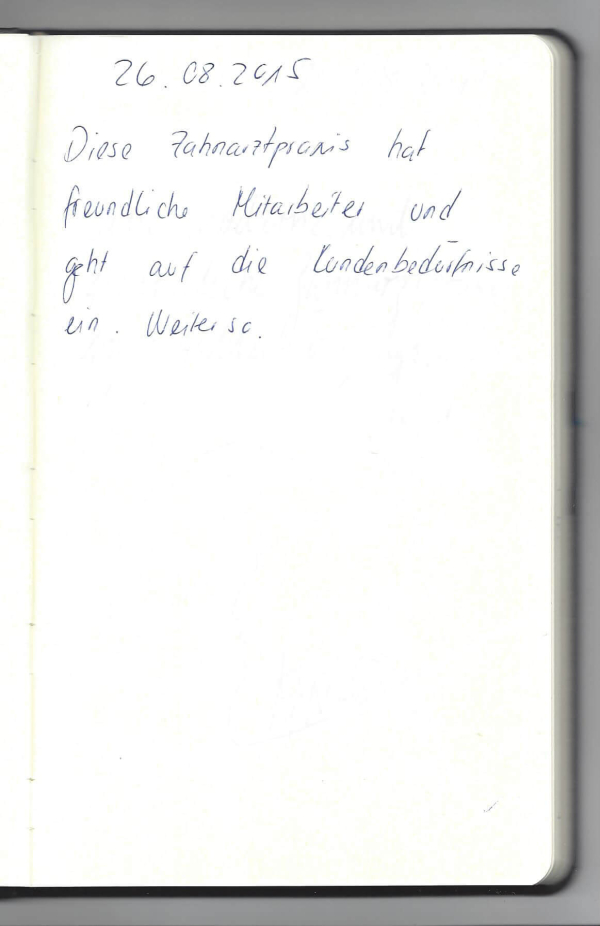 26.08.2015
Diese Zahnarztpraxis hat
freundliche Mitarbeiter und
geht auf die Kundenbedürfnisse
ein. Weiter so.